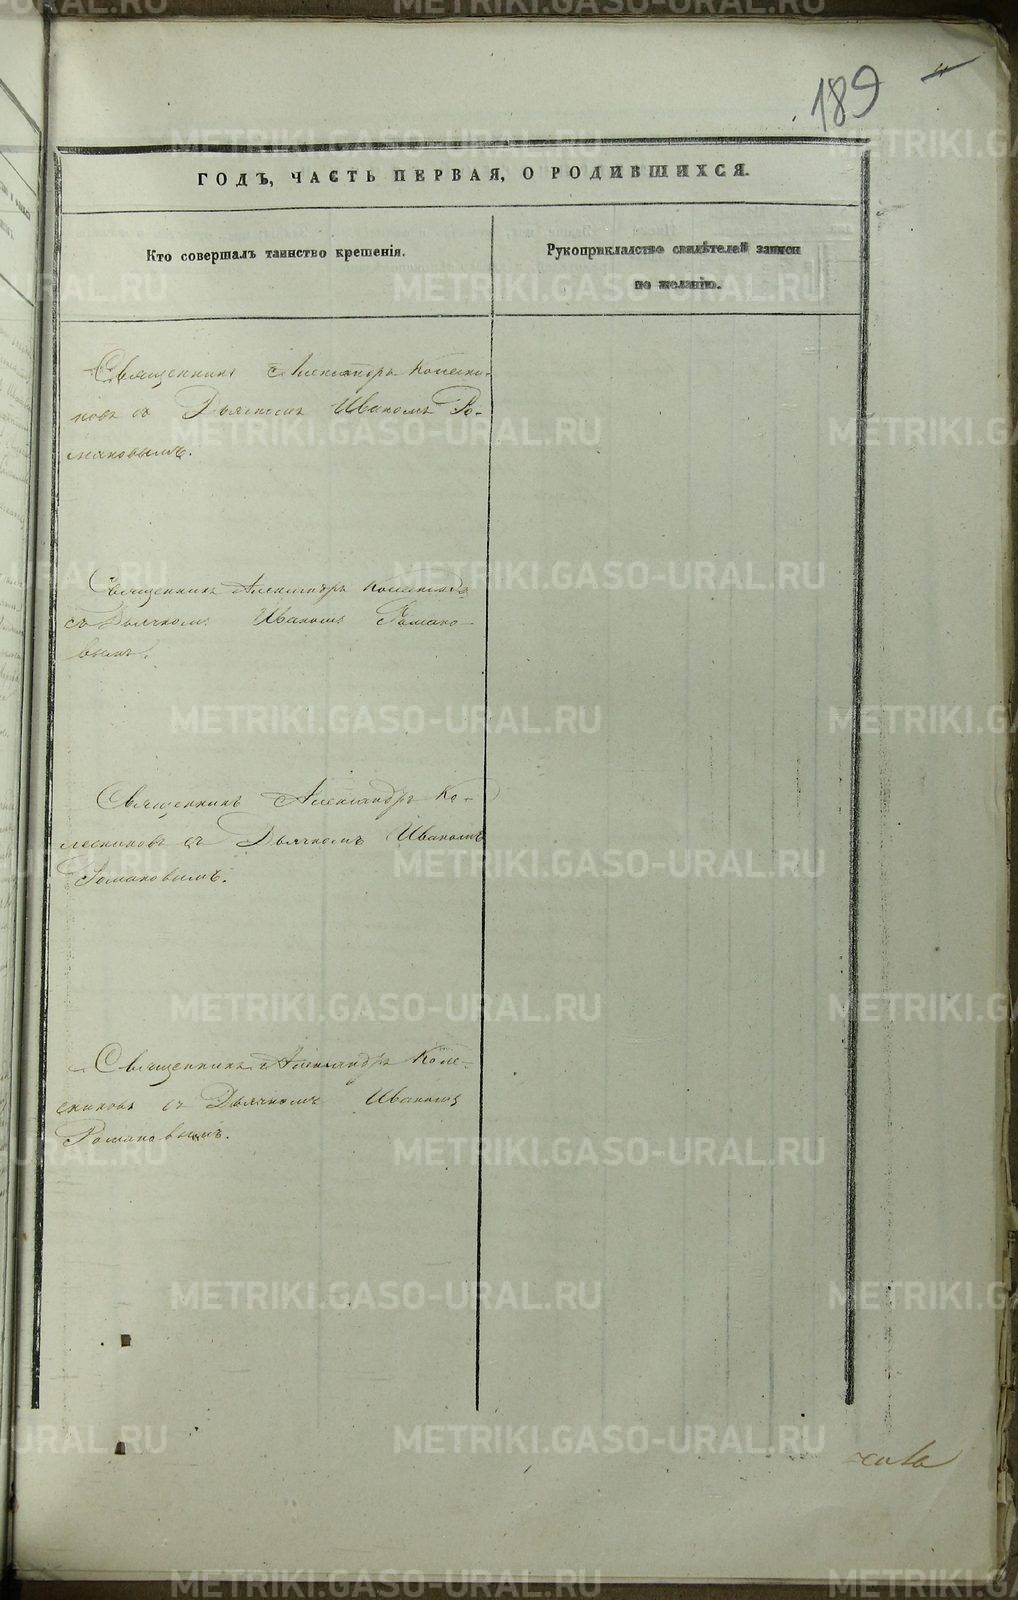 189
ГОДЪ, ЧАСТЬ ПЕРВАЯ, О РОДИВШИХСЯ.
Кто совершалъ таинство крещенія.
Рукоприкладство свидѣтелей записи
по желанію.
Священникъ Александръ Колесни-
ковъ съ Дьячкомъ Иваномъ Ро-
мановымъ.
Священникъ Александръ Колесниковъ
съ Дьячкомъ Иваномъ Романо-
вымъ.
Священникъ Александръ Ко-
лесниковъ съ Дьячкомъ Иваномъ
Романовымъ.
Священникъ Александръ Коле-
сниковъ съ Дьячкомъ Иваномъ
Романовымъ.
METRIKI.GASO-URAL.RU